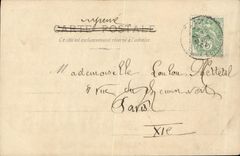 CARTE POSTALE
Ce côté est exclusivement réservé à l'adresse
Mademoiselle Loulou
8 rue du Chemin vert
Paris
XIe